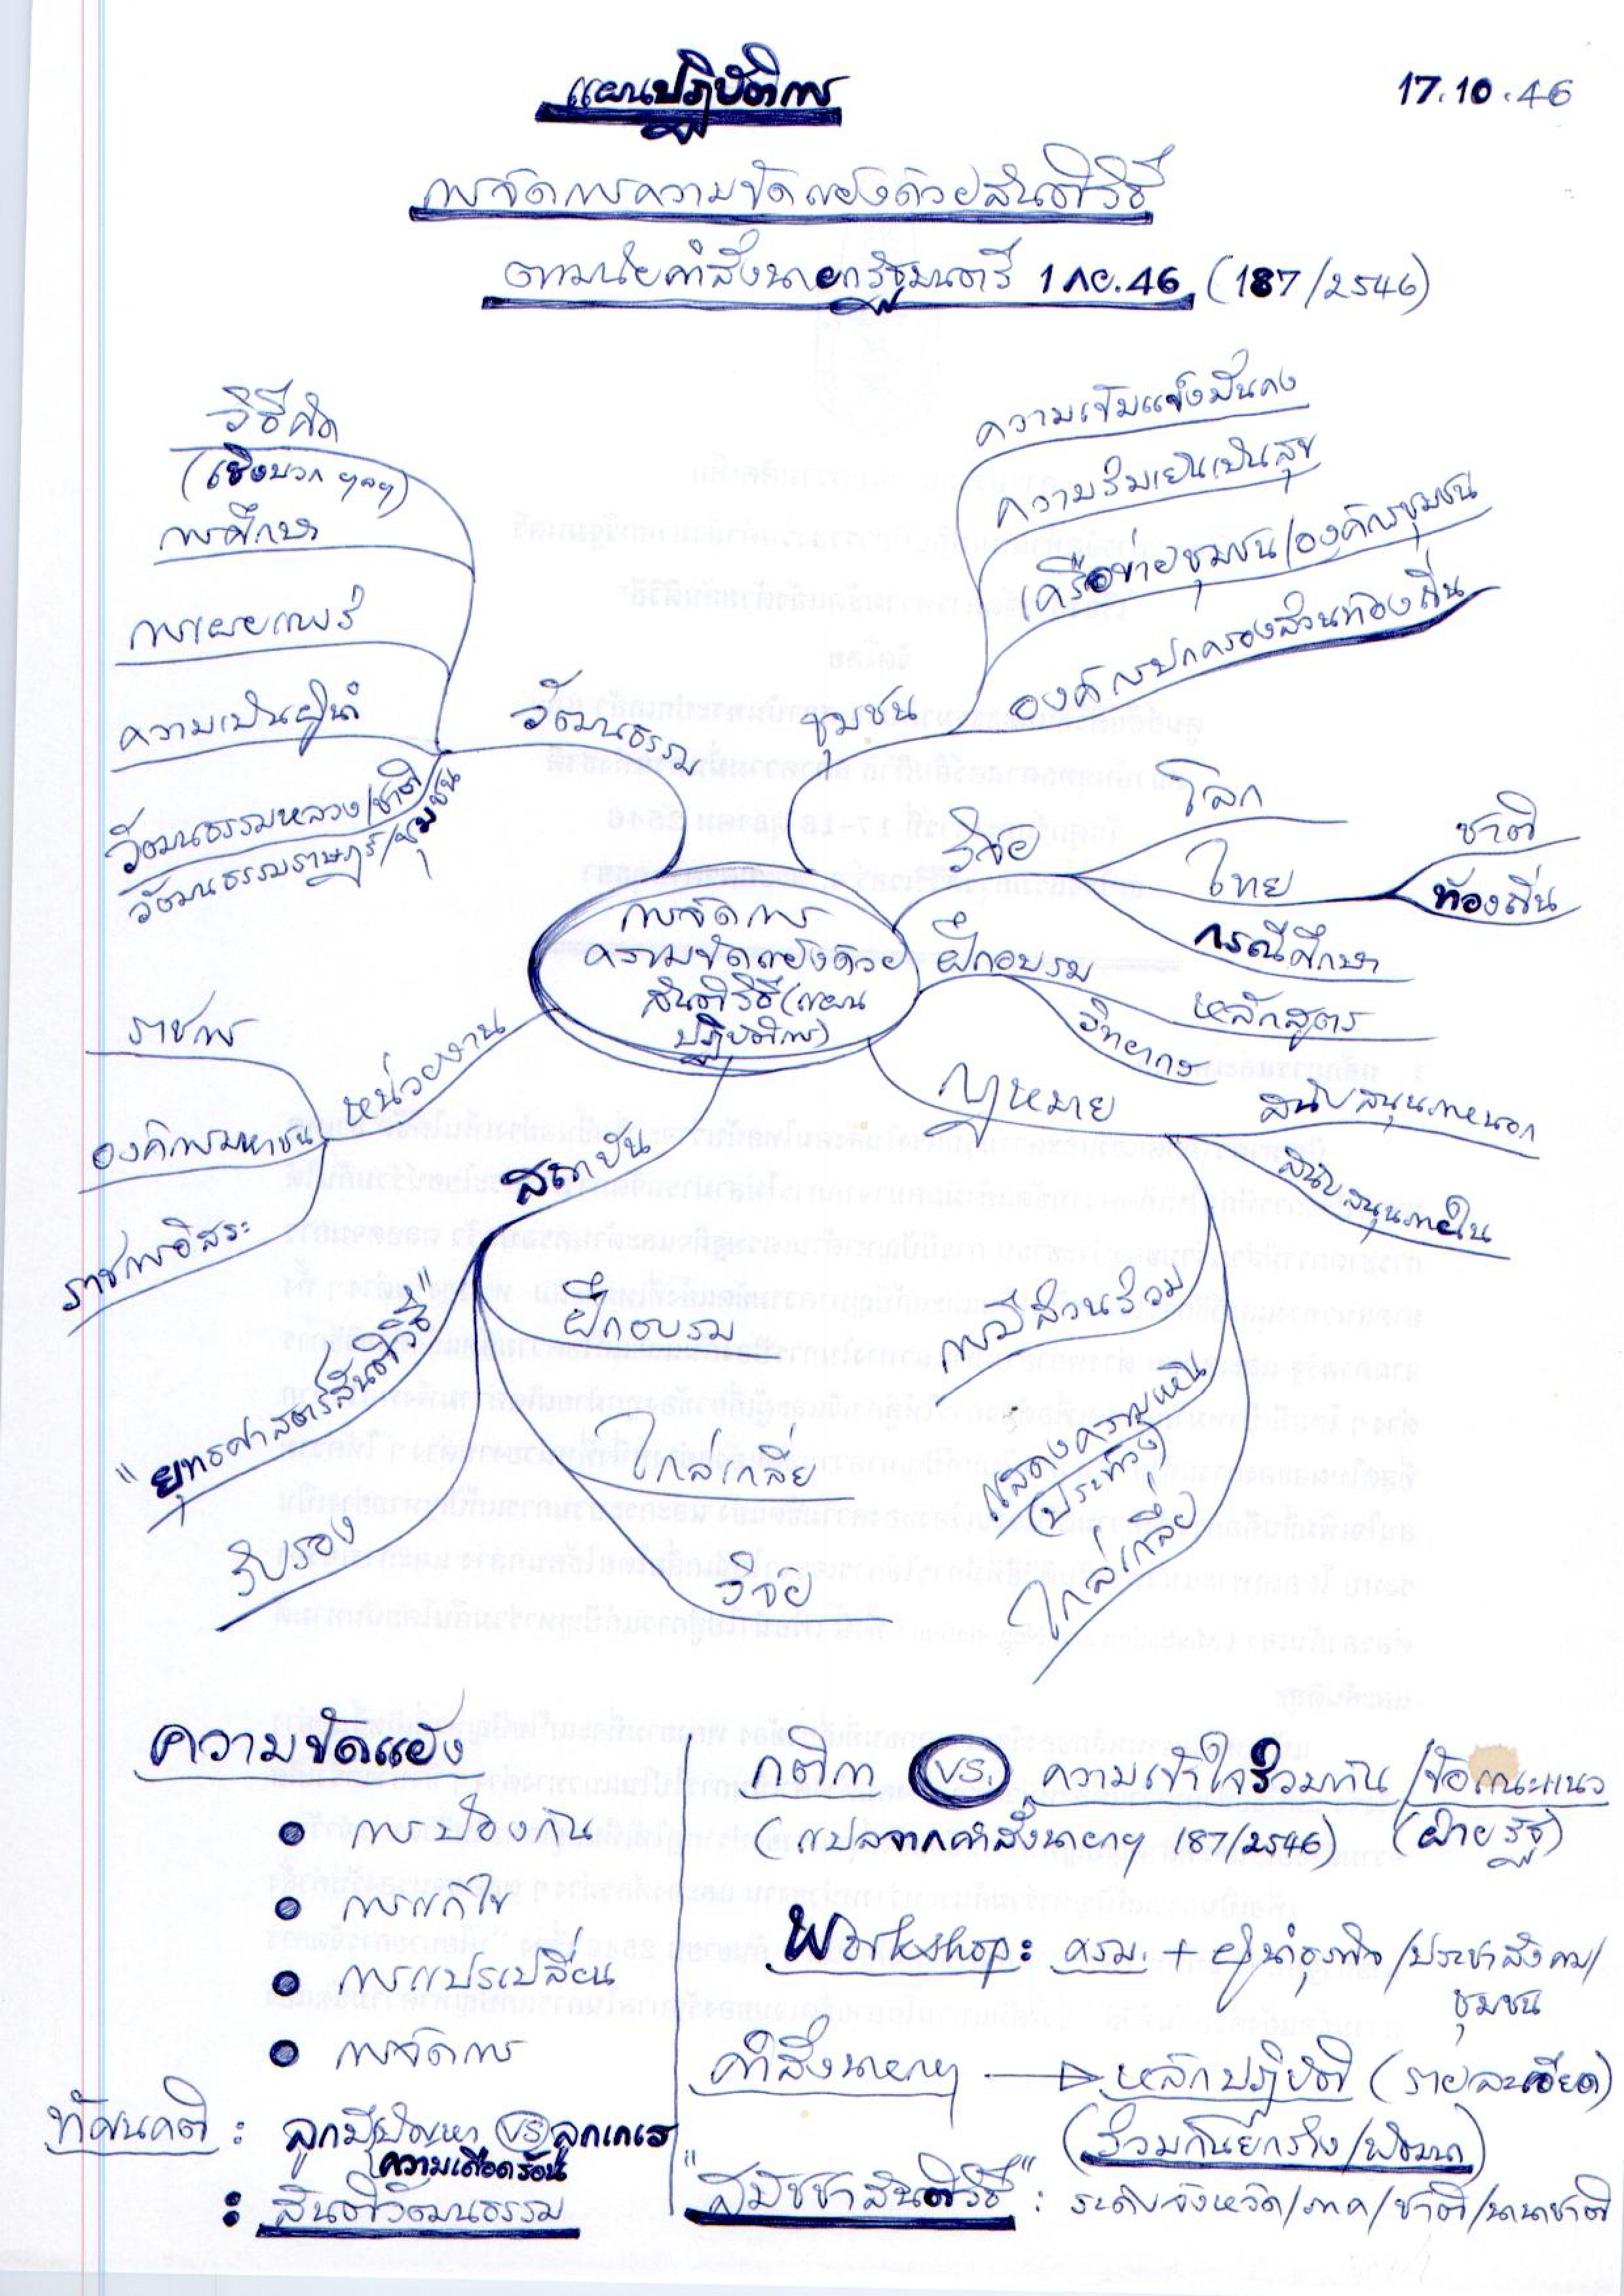 แผนปฏิบัติการ
17.10.46
การจัดการความขัดแย้งด้วยสันติวิธี
ตามนัยคำสั่งนายกรัฐมนตรี 1 กย.46 (187/2546)
วิธีคิด
(เชิงบวก ฯลฯ)
การศึกษา
การเผยแพร่
ความเป็นผู้นำ
วัฒนธรรมหลวง/ชาติ
วัฒนธรรมราษฎร์/ชุมชน
วัฒนธรรม
ชุมชน
ความเข้มแข็งมั่นคง
ความร่มเย็นเป็นสุข
เครือข่ายชุมชน/องค์กรชุมชน
องค์กรปกครองส่วนท้องถิ่น
วิจัย
โลก
ไทย
ชาติ
ท้องถิ่น
กรณีศึกษา
การจัดการ
ความขัดแย้งด้วย
สันติวิธี (แผน
ปฏิบัติการ)
ฝึกอบรม
หลักสูตร
วิทยากร
กฎหมาย
สนับสนุนภายนอก
สนับสนุนภายใน
การมีส่วนร่วม
แสดงความเห็น
(ประท้วง)
ไกล่เกลี่ย
หน่วยงาน
ราชการ
องค์การมหาชน
ราชการอิสระ
สถาบัน
"ยุทธศาสตร์สันติวิธี"
รับรอง
ฝึกอบรม
ไกล่เกลี่ย
วิจัย
ความขัดแย้ง
• การป้องกัน
• การแก้ไข
• การแปรเปลี่ยน
• การจัดการ
ทัศนคติ : ลูกมีปัญหา VS ลูกเกเร
ความเดือดร้อน
: สันติวัฒนธรรม
กติกา VS. ความเข้าใจร่วมกัน /ข้อแนะแนว
(แปลจากคำสั่งนายกฯ 187/2546) (ฝ่ายรัฐ)
Workshop: ครม. + ผู้นำธุรกิจ /ประชาสังคม/
ชุมชน
คำสั่งนายกฯ → หลักปฏิบัติ (รายละเอียด)
(ร่วมกันยกร่าง/พัฒนา)
"สมัชชาสันติวิธี" : ระดับจังหวัด/ภาค/ชาติ/นานาชาติ